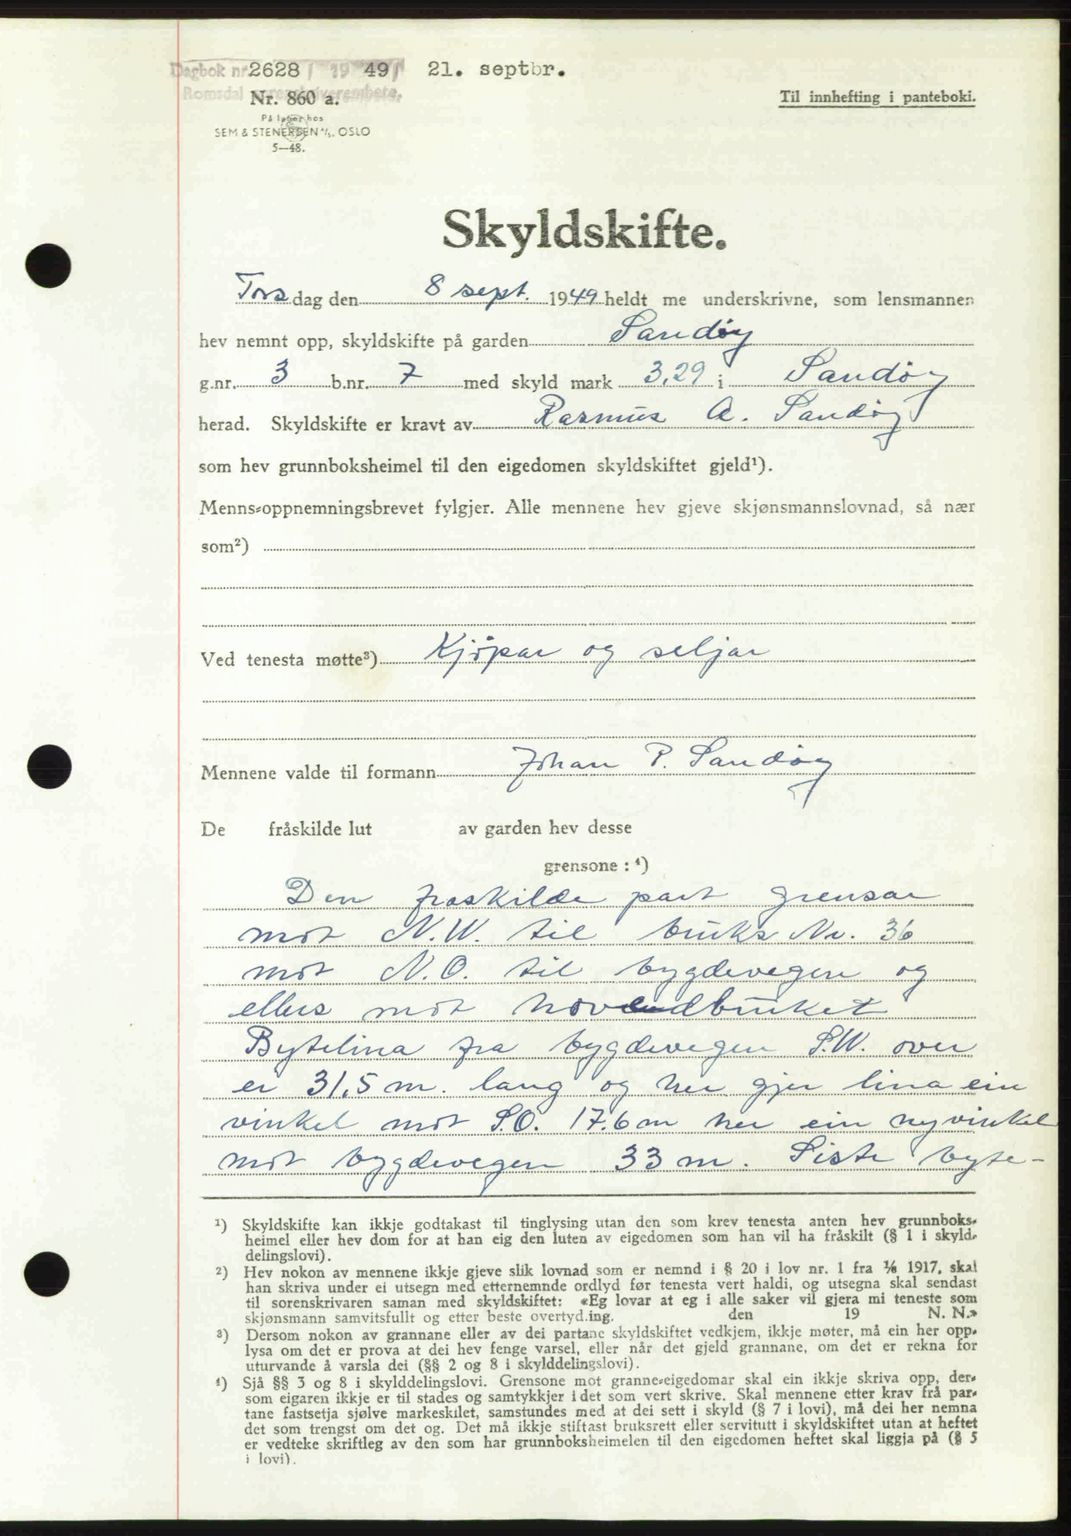 Dagbok nr. 2628 / 1949 / 21. septbr.
Romsdal sorenskriverembete.
Nr. 860 a.
Til innhefting i panteboki.
På lager hos
SEM & STENERSEN A/S, OSLO
5—48.
Skyldskifte.
Torsdag den 8 sept. 1949 heldt me underskrivne, som lensmannen
hev nemnt opp, skyldskifte på garden Sandøy
g.nr. 3 b.nr. 7 med skyld mark 3,29 i Sandøy
herad. Skyldskifte er kravt av Rasmus A. Sandøy
som hev grunnboksheimel til den eigedomen skyldskiftet gjeld¹).
Menns-oppnemningsbrevet fylgjer. Alle mennene hev gjeve skjønsmannslovnad, så nær
som²)
Ved tenesta møtte³) Kjøpar og seljar
Mennene valde til formann Johan P. Sandøy
De fråskilde lut av garden hev desse
grensone : ⁴)
Den fraskilde part grensar
mot N.W. til bruks Nr. 36
mot N.O. til bygdevegen og
ellers mot hovudbruket
Bytelina fra bygdevegen S.W. over
er 31,5 m. lang og her gjer lina ein
vinkel mot S.O. 17.6 m her ein ny vinkel
mot bygdevegen 33 m. Siste byte-
¹) Skyldskifte kan ikkje godtakast til tinglysing utan den som krev tenesta anten hev grunnboks-
heimel eller hev dom for at han eig den luten av eigedomen som han vil ha fråskilt (§ 1 i skyld-
delingslovi).
²) Hev nokon av mennene ikkje gjeve slik lovnad som er nemnd i § 20 i lov nr. 1 fra 1/6 1917, skal
han skriva under ei utsegn med etternemnde ordlyd før tenesta vert haldi, og utsegna skal sendast
til sorenskrivaren saman med skyldskiftet: «Eg lovar at eg i alle saker vil gjera mi teneste som
skjønsmann samvitsfullt og etter beste overtyding. den 19 N. N.»
³) Dersom nokon av grannane eller av dei partane skyldskiftet vedkjem, ikkje møter, må ein her opp-
lysa om det er prova at dei hev fenge varsel, eller når det gjeld grannane, om det er rekna for
uturvande å varsla dei (§§ 2 og 8 i skylddelingslovi).
⁴) Sjå §§ 3 og 8 i skylddelingslovi. Grensone mot granne-eigedomar skal ein ikkje skriva opp, der-
som eigaren ikkje er til stades og samtykkjer i det som vert skrive. Skal mennene etter krav frå par-
tane fastsetja sjølve markeskilet, samstundes med at dei sett i skyld (§ 7 i lovi), må dei her nemna
det som trengst om det og. Det må ikkje stiftast bruksrett eller servitutt i skyldskiftet utan at heftet
er vedteke skriftleg av den som har grunnboksheimelen til den eigedomen heftet skal liggja på (§ 5
i lovi).